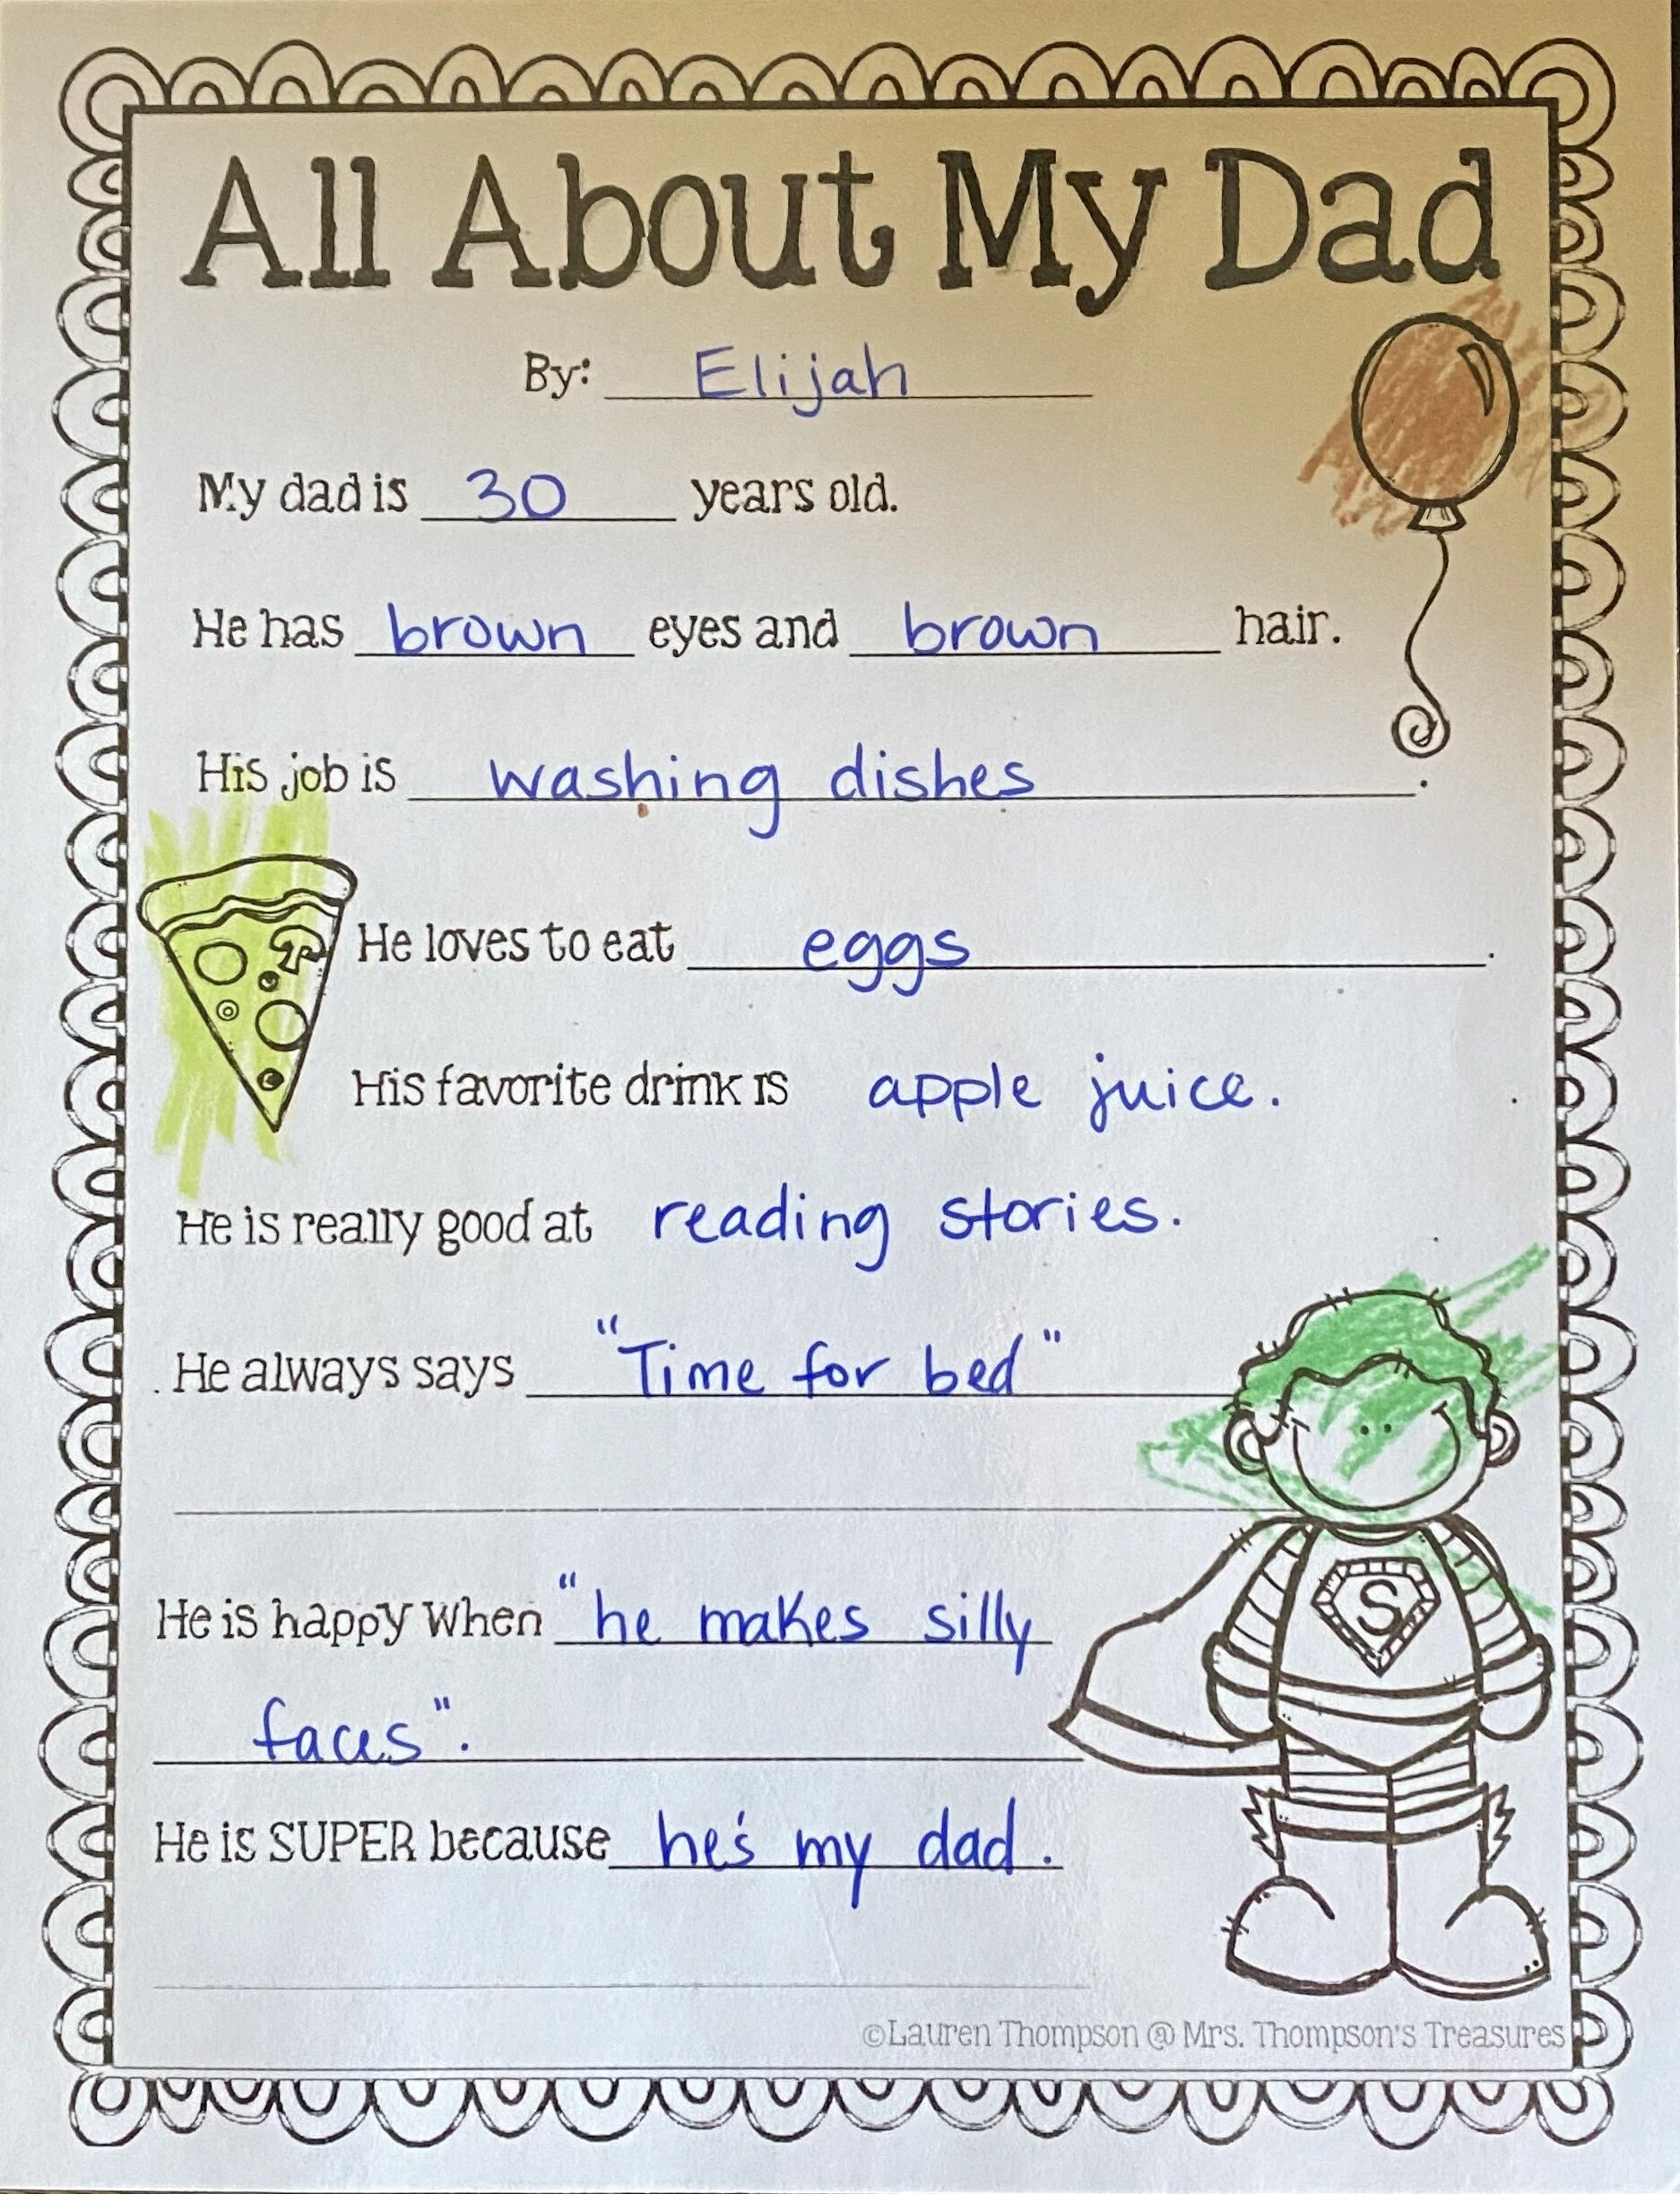 All About My Dad
By: Elijah
My dad is 30 years old.
He has brown eyes and brown hair.
His job is washing dishes.
He loves to eat eggs.
His favorite drink is apple juice. .
He is really good at reading stories.
He always says "Time for bed"
He is happy when "he makes silly
faces".
S
He is SUPER because he's my dad.
©Lauren Thompson @ Mrs. Thompson's Treasures